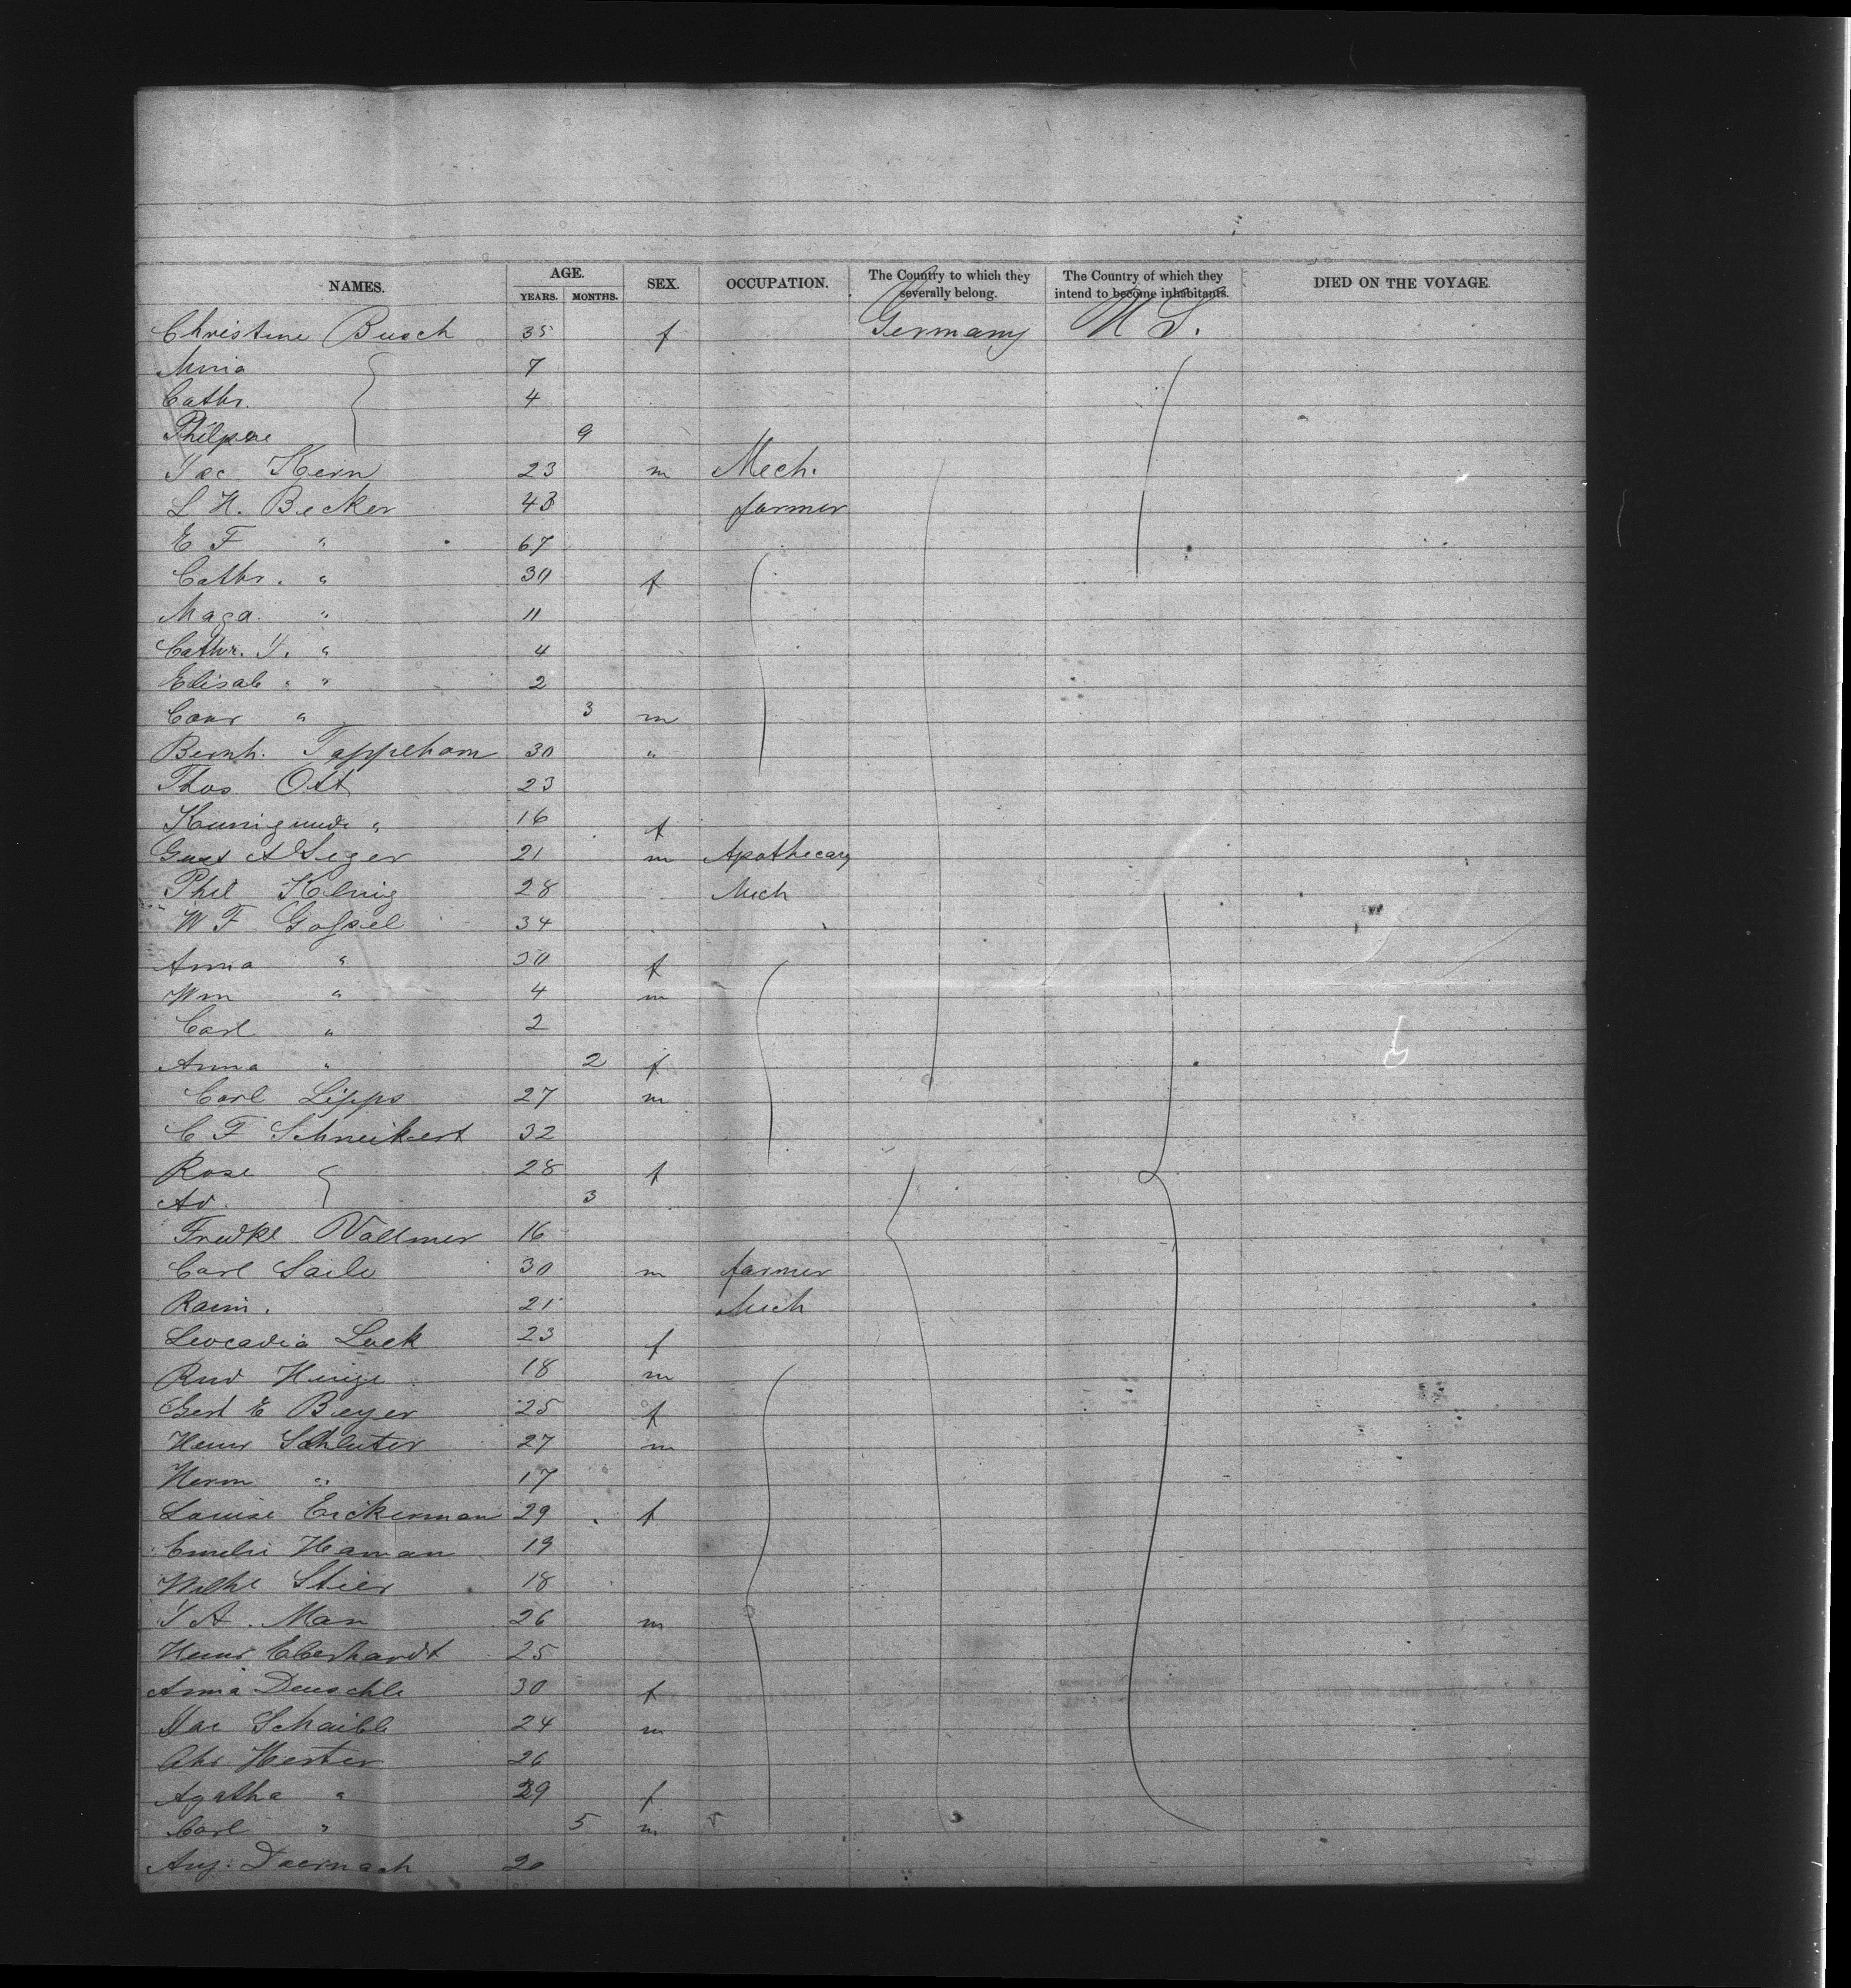 NAMES. AGE. SEX. OCCUPATION. The Country to which they severally belong. The Country of which they intend to become inhabitants. DIED ON THE VOYAGE.
YEARS. MONTHS.
Christine Busch 35 f Germany U S.
7
Cathr. 4
9
Jac Kern 23 m Mech.
L H. Becker 43 farmer
E F " 67
Cathr. " 30 f
Maga. " 11
Cathr. J. " 4
Elisab " " 2
" 3 m
Bernh. 30 "
Thos Ott 23
Kunigunde " 16 f
21 m Apothecary
Phil 28 Mech
W F 34
Anna " 30 f
Wm " 4 m
Carl " 2
Anna " 2 f
Carl Lipps 27 m
C F Schneikert 32
Rose 28 f
Ad. 3
Vollmer 16
Carl Saile 30 m farmer
21 Mech
Leocadia 23 f
Rud 18 m
Gert E Beyer 25 f
Heinr Schluter 27 m
Herm " 17
Louise 29 f
Emelie Haman 19
Wilhe Stier 18
J A. Man 26 m
Heinr Eberhardt 25
Anna Deuschle 30 f
Jac Schaible 24 m
Chr Hester 26
Agatha " 29 f
Carl " 5 m
Aug. 20